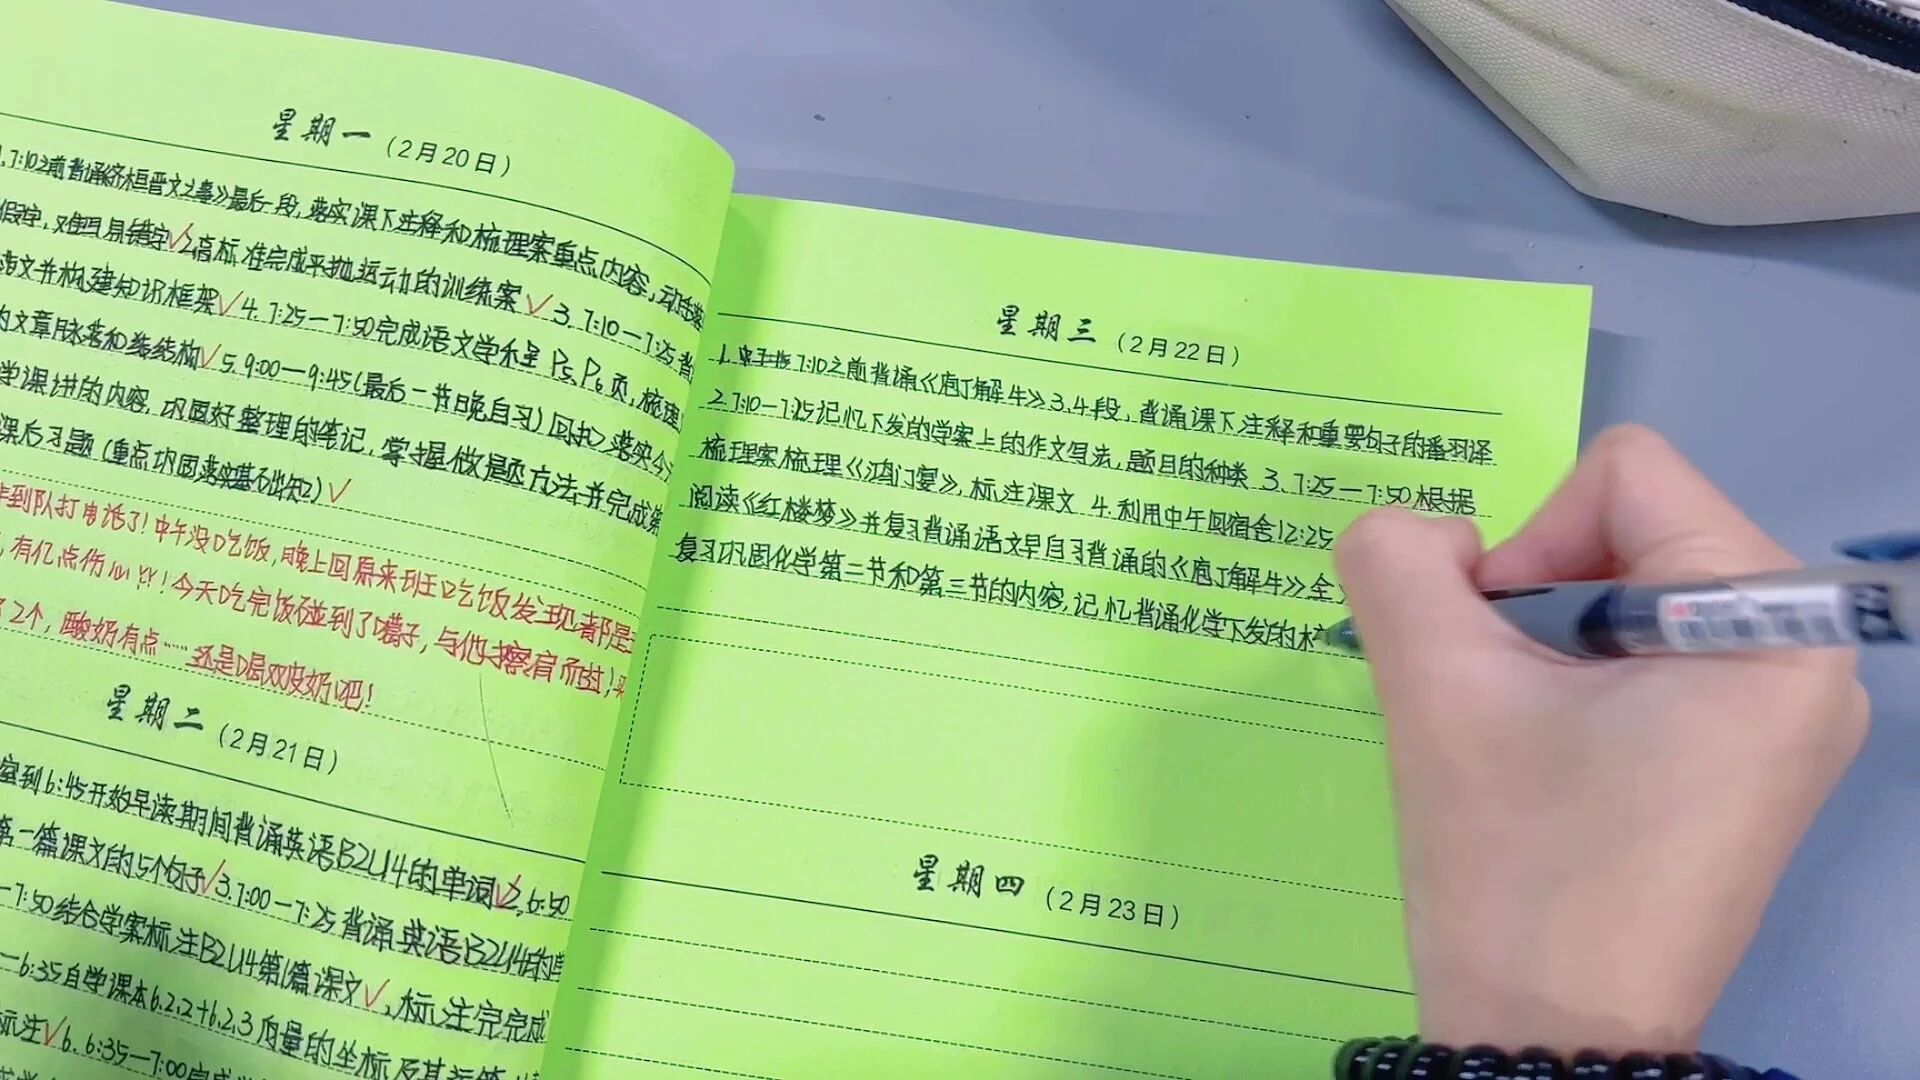 星期一（2月20日）
1.7:10之前背诵《齐桓晋文之事》最后一段,落实课下注释和梳理案重点内容,
假字,难写易错字√2.高标准完成平抛运动的训练案√3.7:10—7:25背
文并构建知识框架√4.7:25—7:50完成语文学 P5、P6页,梳理
的文章脉络和 结构√5.9:00—9:45(最后一节晚自习)回扣落实今
学课讲的内容,巩固好整理的笔记,掌握做题方法并完成
课后习题(重点巩固落实基础知)√
到队打电话了!中午没吃饭,晚上回原来班吃饭发现都是
,有亿点伤心!!今天吃完饭碰到了 子,与他擦肩而过!
2个,酸奶有点……还是 双皮奶吧!
星期二（2月21日）
室到6:45开始早读期间背诵英语B2U4的单词√2.6:50
第一篇课文的5个句子√3.7:00—7:25背诵英语B2U4的单
—7:50结合学案标注B2U4第1篇课文√,标注完完成
—6:35自学课本6.2.2+6.2.3向量的坐标及其运算
标注√6.6:35—7:00完成
星期三（2月22日）
1. 7:10之前背诵《庖丁解牛》3、4段,背诵课下注释和重要句子的翻译
2.7:10—7:25记忆下发的学案上的作文写法,题目的种类 3.7:25—7:50根据
梳理案梳理《鸿门宴》,标注课文 4.利用中午回宿舍12:25
阅读《红楼梦》并复习背诵语文早自习背诵的《庖丁解牛》全
复习巩固化学第二节和第三节的内容,记忆背诵化学下发的
星期四（2月23日）